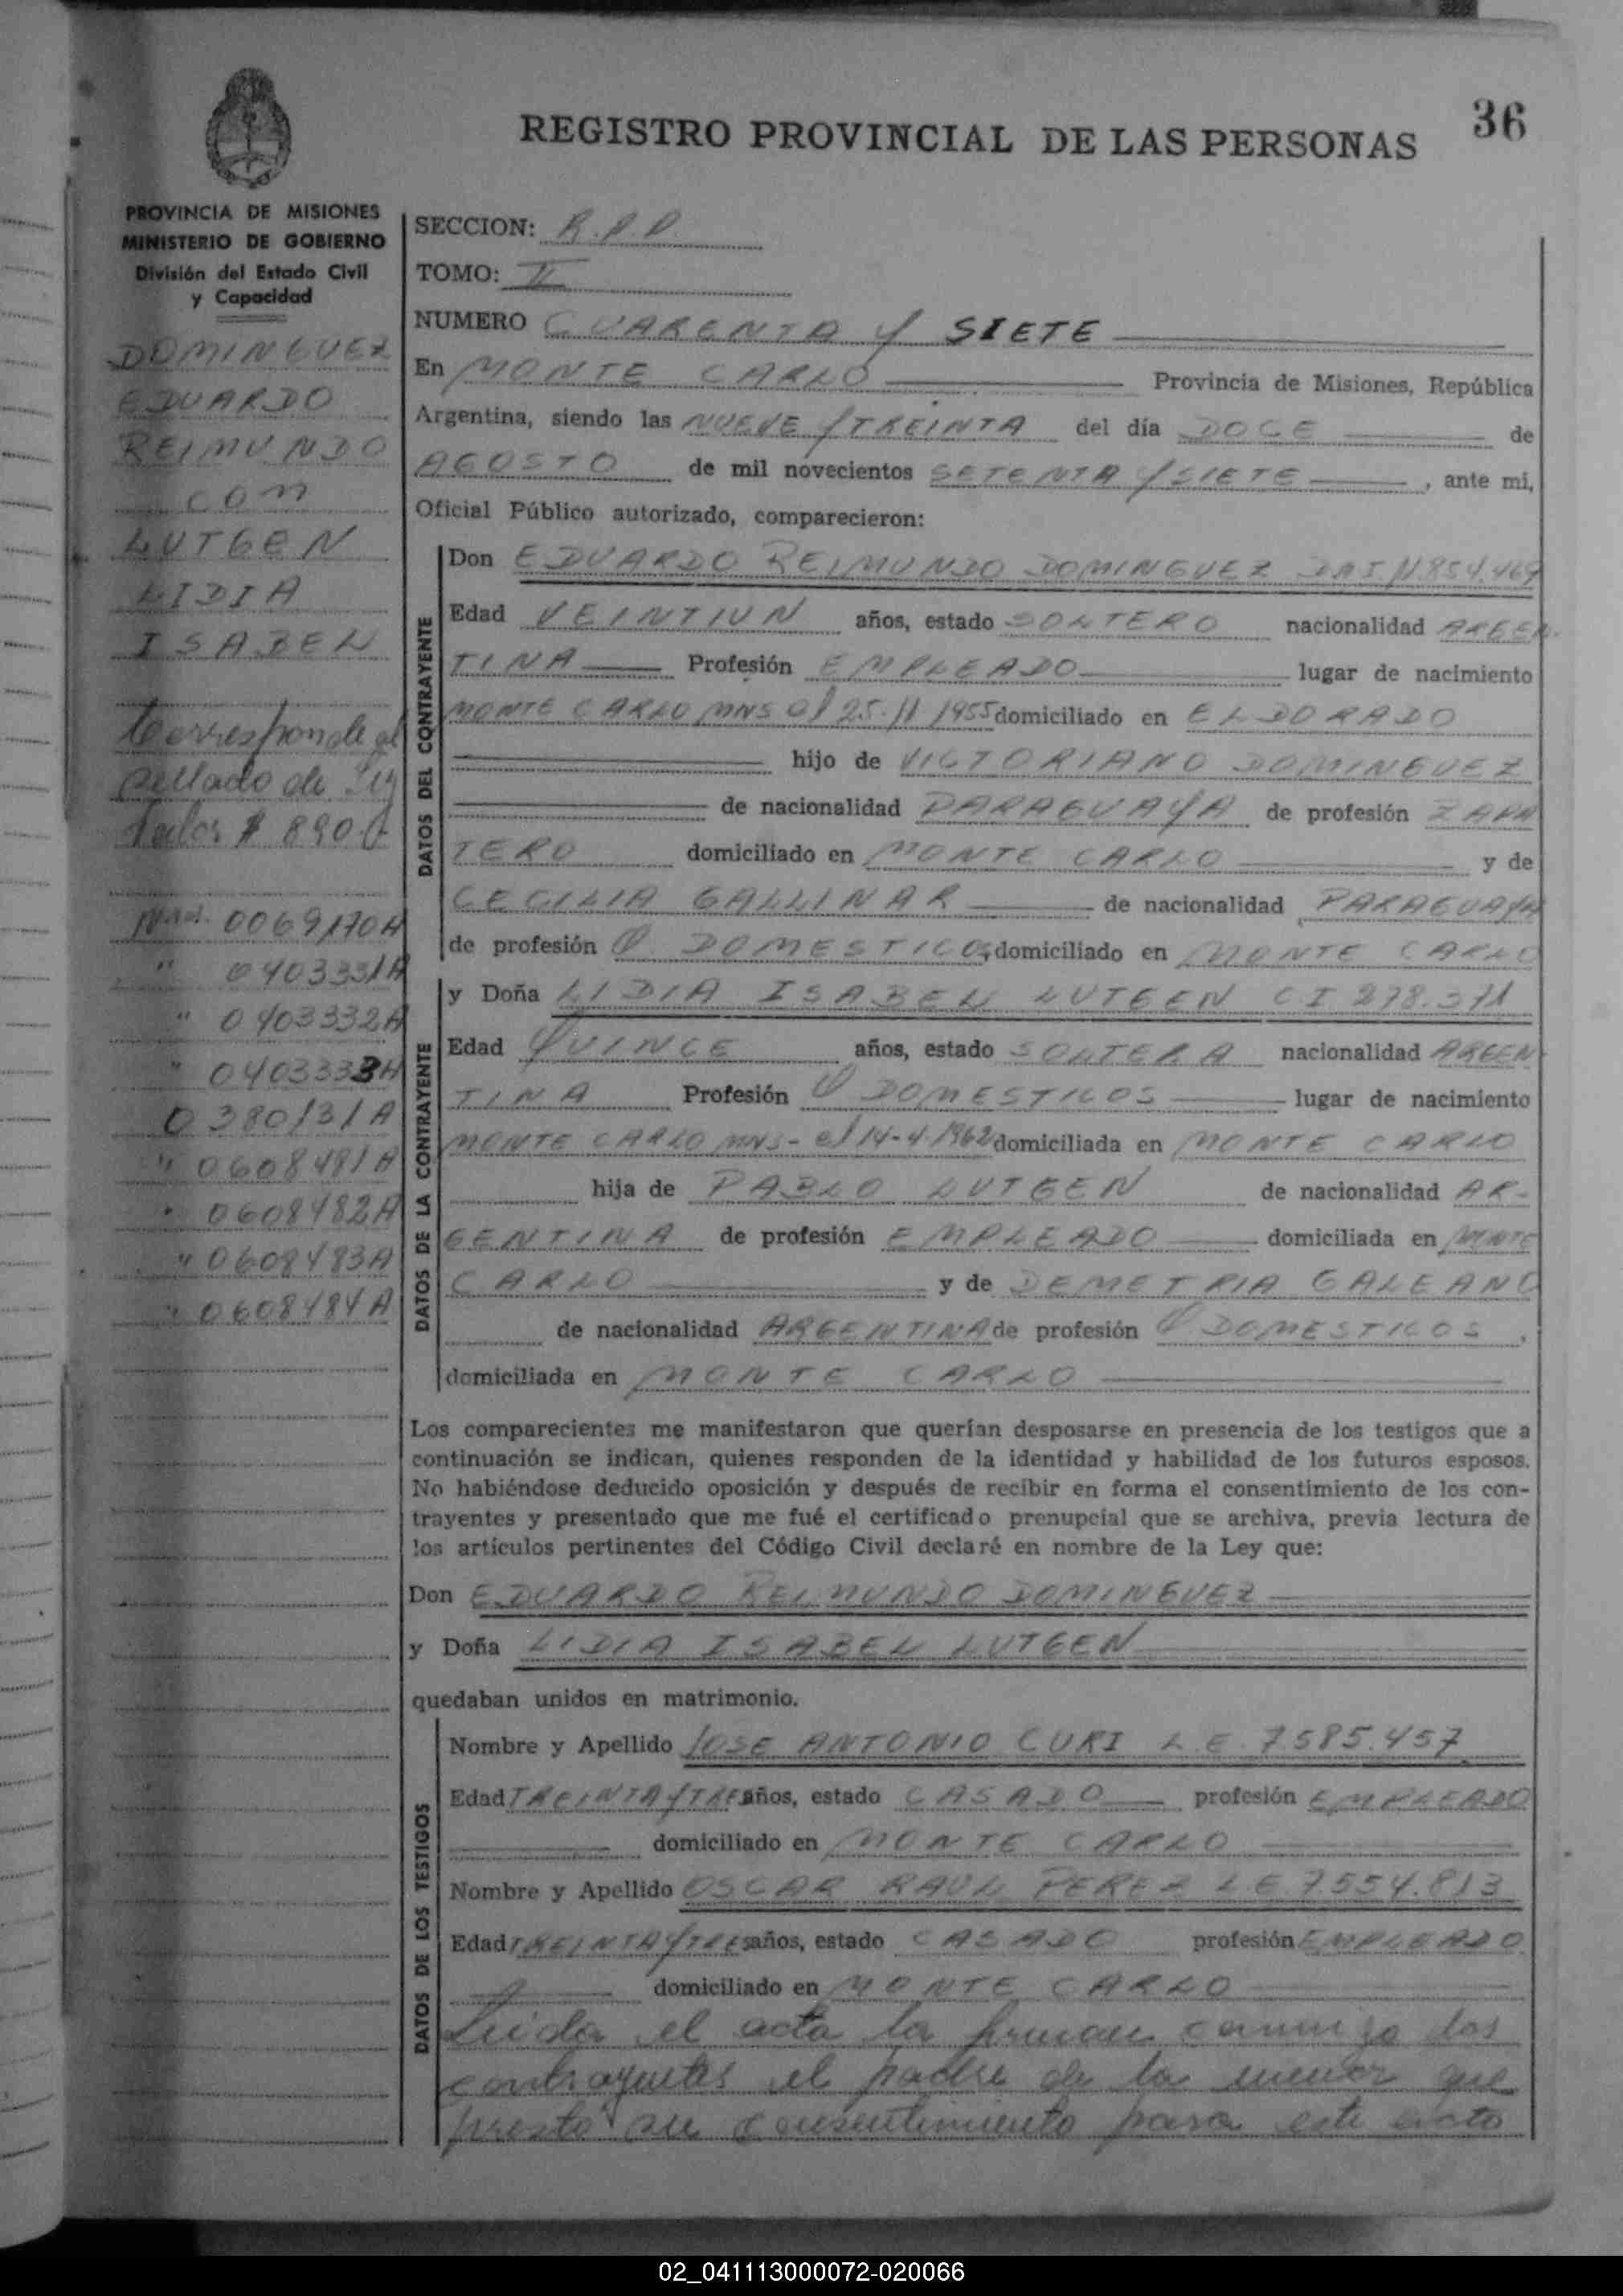 36
REGISTRO PROVINCIAL DE LAS PERSONAS
PROVINCIA DE MISIONES
MINISTERIO DE GOBIERNO
División del Estado Civil
y Capacidad
DOMINGUEZ
EDUARDO
REIMUNDO
CON
LUTGEN
LIDIA
ISABEL
Corresponde al
sellado de Ley
Valor $ 890.-
0069170A
" 0403331A
" 0403332A
" 0403333A
0380131A
" 0608481A
" 0608482A
" 0608483A
" 0608484A
SECCION: R.P.P.
TOMO: II
NUMERO CUARENTA Y SIETE
En MONTE CARLO Provincia de Misiones, República
Argentina, siendo las NUEVE Y TREINTA del día DOCE de
AGOSTO de mil novecientos SETENTA Y SIETE, ante mí,
Oficial Público autorizado, comparecieron:
DATOS DEL CONTRAYENTE
Don EDUARDO REIMUNDO DOMINGUEZ 854.469
Edad VEINTIUN años, estado SOLTERO nacionalidad ARGEN-
TINA Profesión EMPLEADO lugar de nacimiento
MONTE CARLO MNS el 25.11.1955 domiciliado en ELDORADO
hijo de VICTORIANO DOMINGUEZ
de nacionalidad PARAGUAYA de profesión ZAPA
TERO domiciliado en MONTE CARLO y de
CECILIA GALLINAR de nacionalidad PARAGUAYA
de profesión Q DOMESTICOS domiciliado en MONTE CARLO
DATOS DE LA CONTRAYENTE
y Doña LIDIA ISABEL LUTGEN C I 278.371
Edad QUINCE años, estado SOLTERA nacionalidad ARGEN
TINA Profesión Q DOMESTICOS lugar de nacimiento
MONTE CARLO MNS - el 14-4-1962 domiciliada en MONTE CARLO
hija de PABLO LUTGEN de nacionalidad AR-
GENTINA de profesión EMPLEADO domiciliada en MONTE
CARLO y de DEMETRIA GALEANO
de nacionalidad ARGENTINA de profesión Q DOMESTICOS,
domiciliada en MONTE CARLO
Los comparecientes me manifestaron que querían desposarse en presencia de los testigos que a
continuación se indican, quienes responden de la identidad y habilidad de los futuros esposos.
No habiéndose deducido oposición y después de recibir en forma el consentimiento de los con-
trayentes y presentado que me fué el certificado prenupcial que se archiva, previa lectura de
los artículos pertinentes del Código Civil declaré en nombre de la Ley que:
Don EDUARDO REIMUNDO DOMINGUEZ
y Doña LIDIA ISABEL LUTGEN
quedaban unidos en matrimonio.
DATOS DE LOS TESTIGOS
Nombre y Apellido JOSE ANTONIO CURI L.E. 7585.457
Edad TREINTA Y TRES años, estado CASADO profesión EMPLEADO
domiciliado en MONTE CARLO
Nombre y Apellido OSCAR RAUL PEREZ L E 7554.813
Edad TREINTA Y TRES años, estado CASADO profesión EMPLEADO
domiciliado en MONTE CARLO
Leida el acta la firman conmigo los
contrayentes el padre de la menor que
presta su consentimiento para este acto
02_041113000072-020066